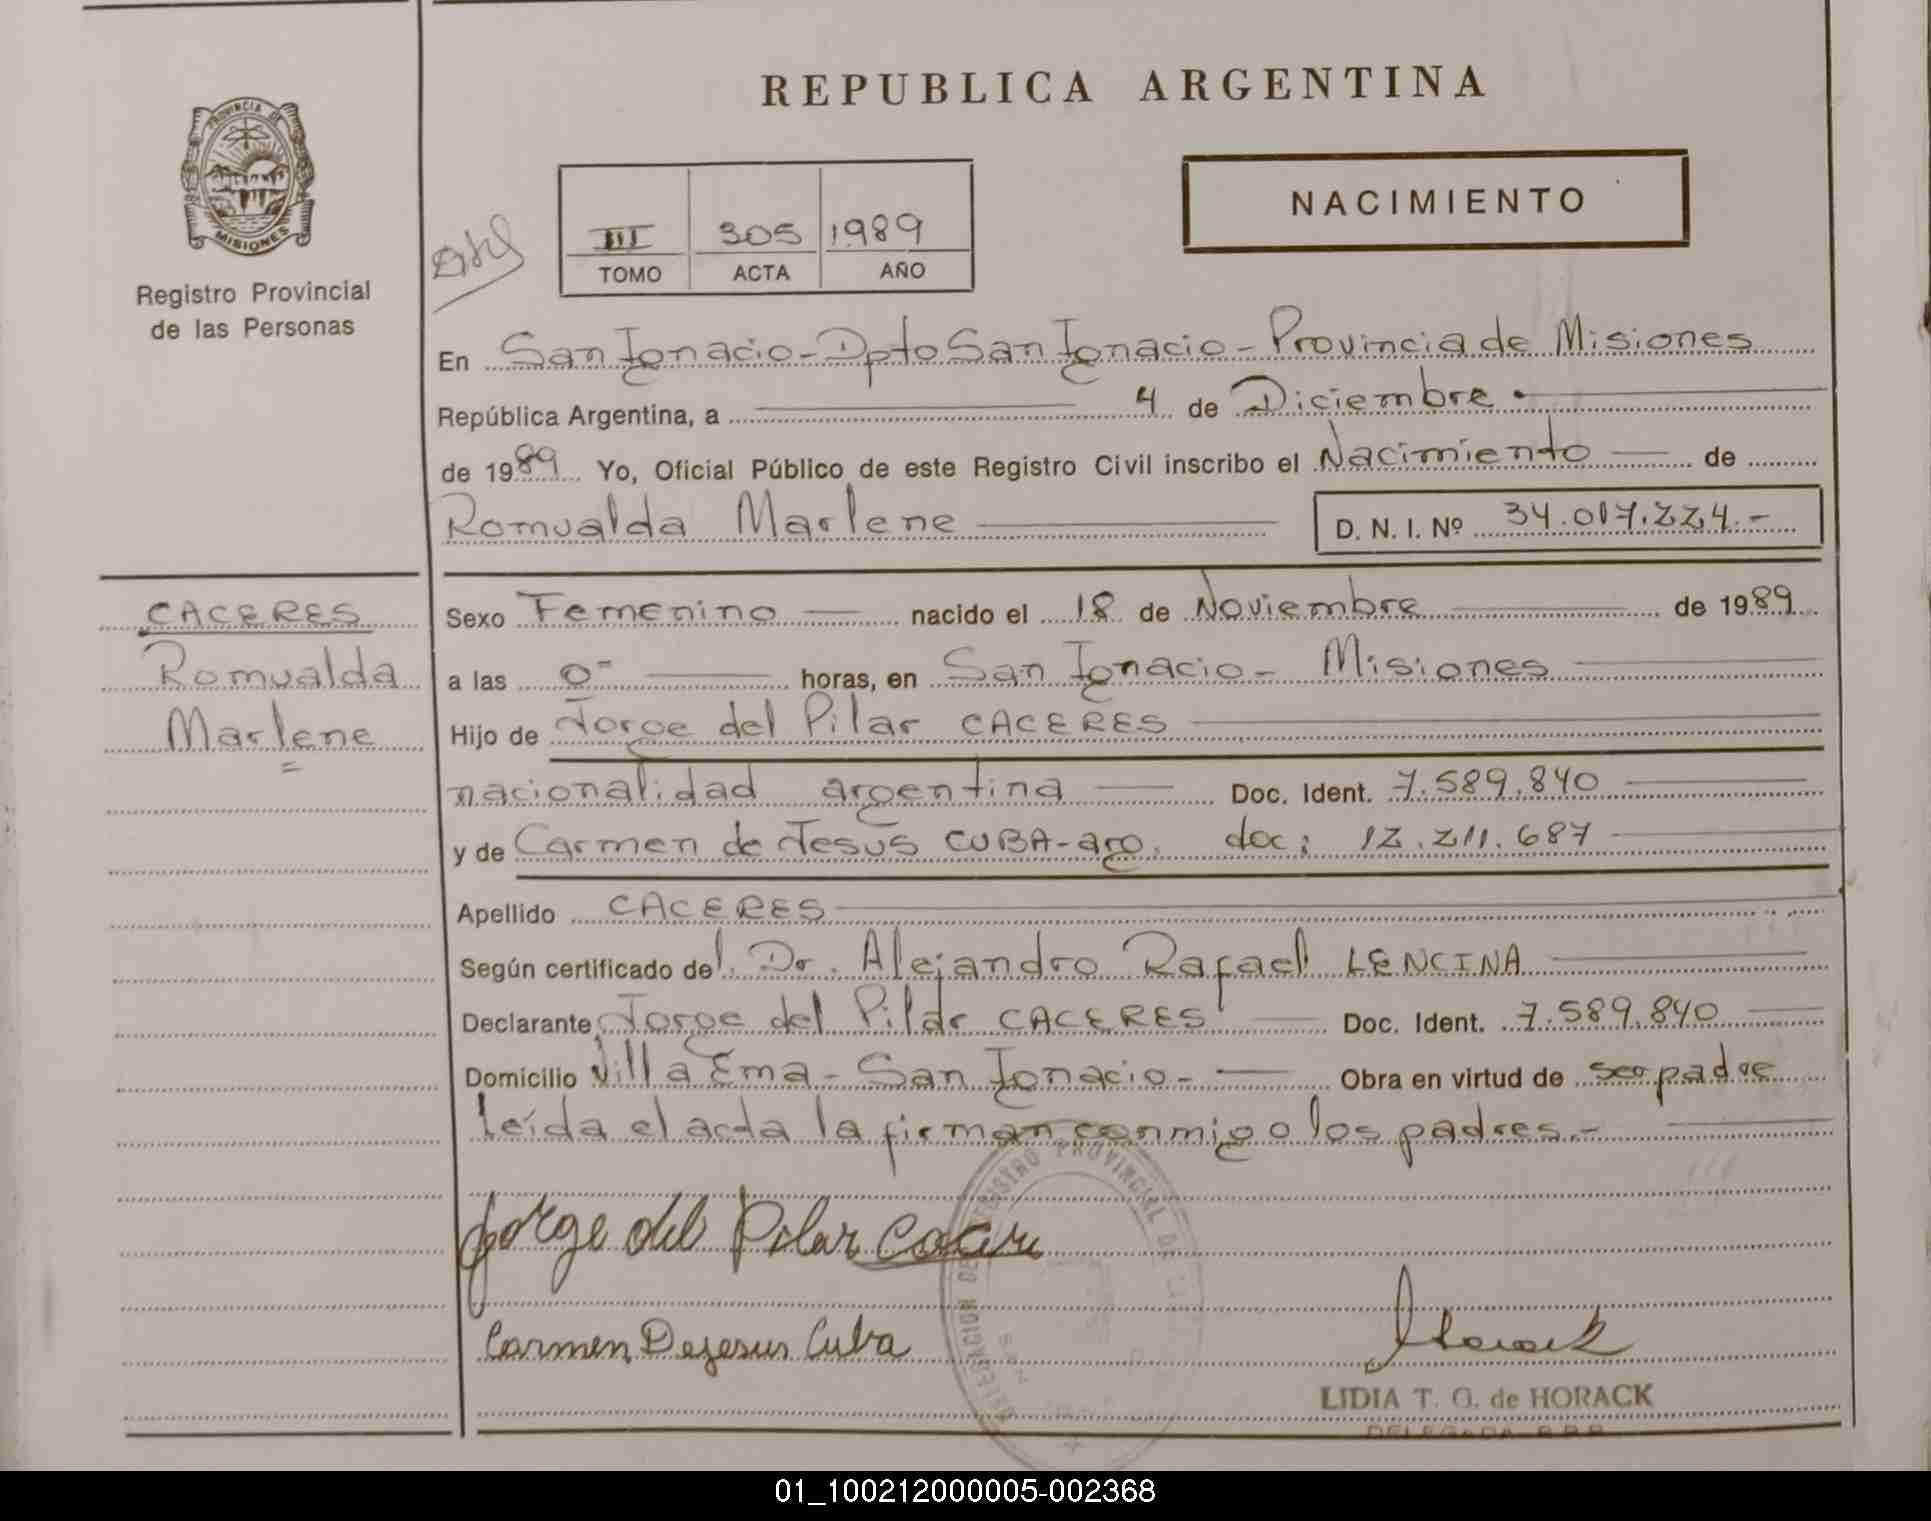 REPUBLICA ARGENTINA
PROVINCIA DE
MISIONES
Registro Provincial
de las Personas
NACIMIENTO
III 305 1989
TOMO ACTA AÑO
En San Ignacio - Dpto San Ignacio - Provincia de Misiones
República Argentina, a 4 de Diciembre.
de 1989 Yo, Oficial Público de este Registro Civil inscribo el Nacimiento de
Romualda Marlene
D. N. I. Nº 34.017.224.-
CACERES
Romualda
Marlene
Sexo Femenino nacido el 18 de Noviembre de 1989
a las 0- horas, en San Ignacio - Misiones
Hijo de Jorge del Pilar CACERES
nacionalidad argentina Doc. Ident. 7.589.840
y de Carmen de Jesús CUBA - arg. doc: 12.211.687
Apellido CACERES
Según certificado del. Dr. Alejandro Rafael LENCINA
Declarante Jorge del Pilar CACERES Doc. Ident. 7.589.840
Domicilio Villa Ema - San Ignacio - Obra en virtud de ser padre
Leída el acta la firman conmigo los padres.-
Jorge del Pilar Caceres
Carmen Dejesus Cuba
Horack
LIDIA T. G. de HORACK
DELEGADA R.P.P.
01_100212000005-002368